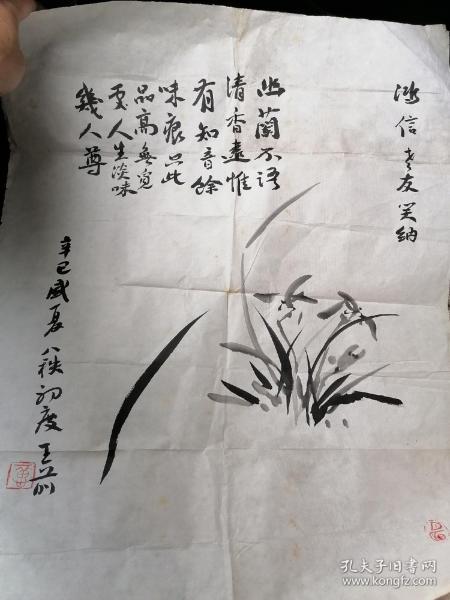 信老友笑纳
幽兰不语
清香远惟
有知音馀
味痕只此
品高无觅
更人生淡味
几人尊
辛巳盛夏八秩初度王前
孔夫子旧书网
www.kongfz.com